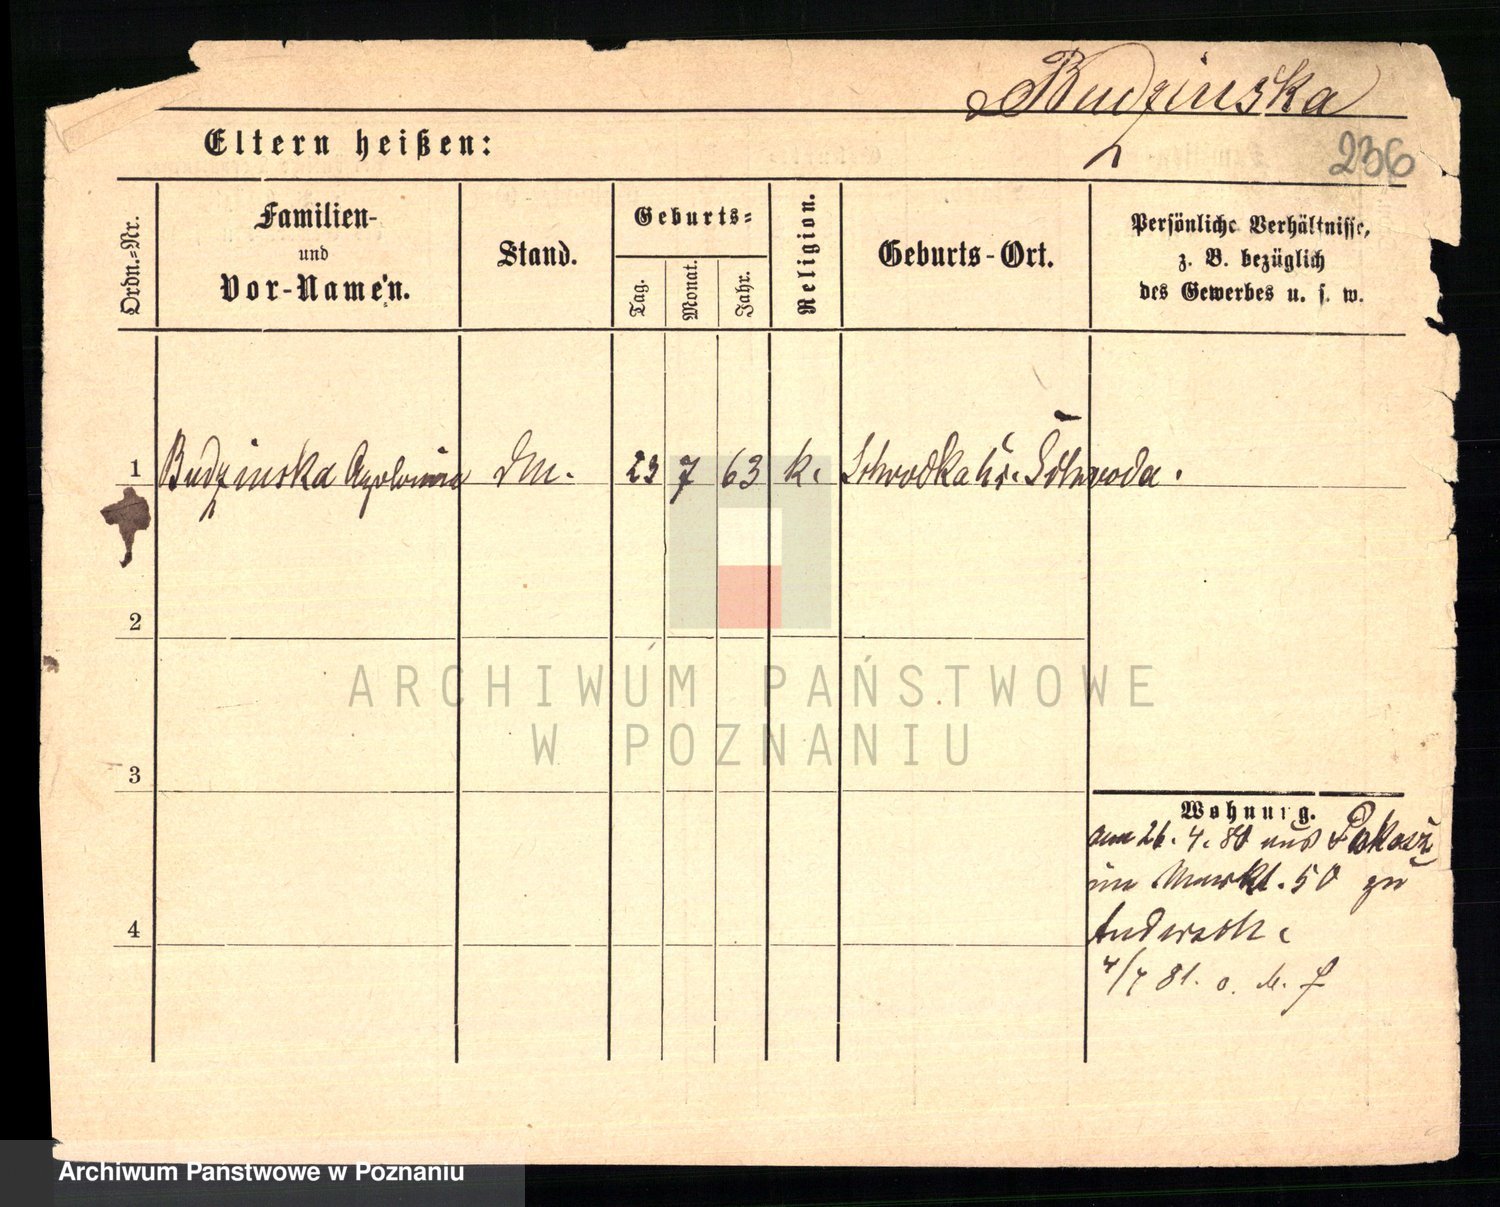 Budzinska
236
Eltern heißen:
Ordn.-Nr.
Familien-
und
Vor-Namen.
Stand.
Geburts-
Tag.
Monat.
Jahr.
Religion.
Geburts-Ort.
Persönliche Verhältnisse,
z. B. bezüglich
des Gewerbes u. s. w.
1 Budzinska Apolonia DM. 23 7 63 k. Schroda.
2
3
4
Wohnung.
26. 4. 80 aus
im Markt. 50 zu
4/4 81. o.
ARCHIWUM PAŃSTWOWE
W POZNANIU
Archiwum Państwowe w Poznaniu